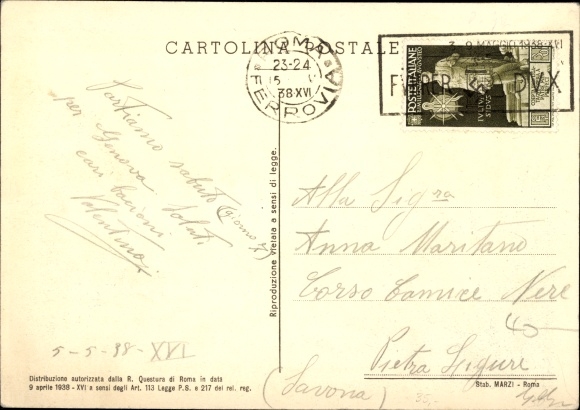 CARTOLINA POSTALE
ROMA
23-24
5
38·XVI
FERROVIA
3 - 9 MAGGIO 1938·XVI
DVX
POSTE ITALIANE
Partiamo sabato (giorno 7)
per Genova. Saluti
cari bacioni
Valentina.
5-5-38-XVI
Riproduzione vietata a sensi di legge.
Alla Sig.ra
Anna Maritano
Corso Camice Nere
Pietra Ligure
(Savona)
35,-
Distribuzione autorizzata dalla R. Questura di Roma in data
9 aprile 1938 - XVI a sensi degli Art. 113 Legge P.S. e 217 del rel. reg.
Stab. MARZI - Roma